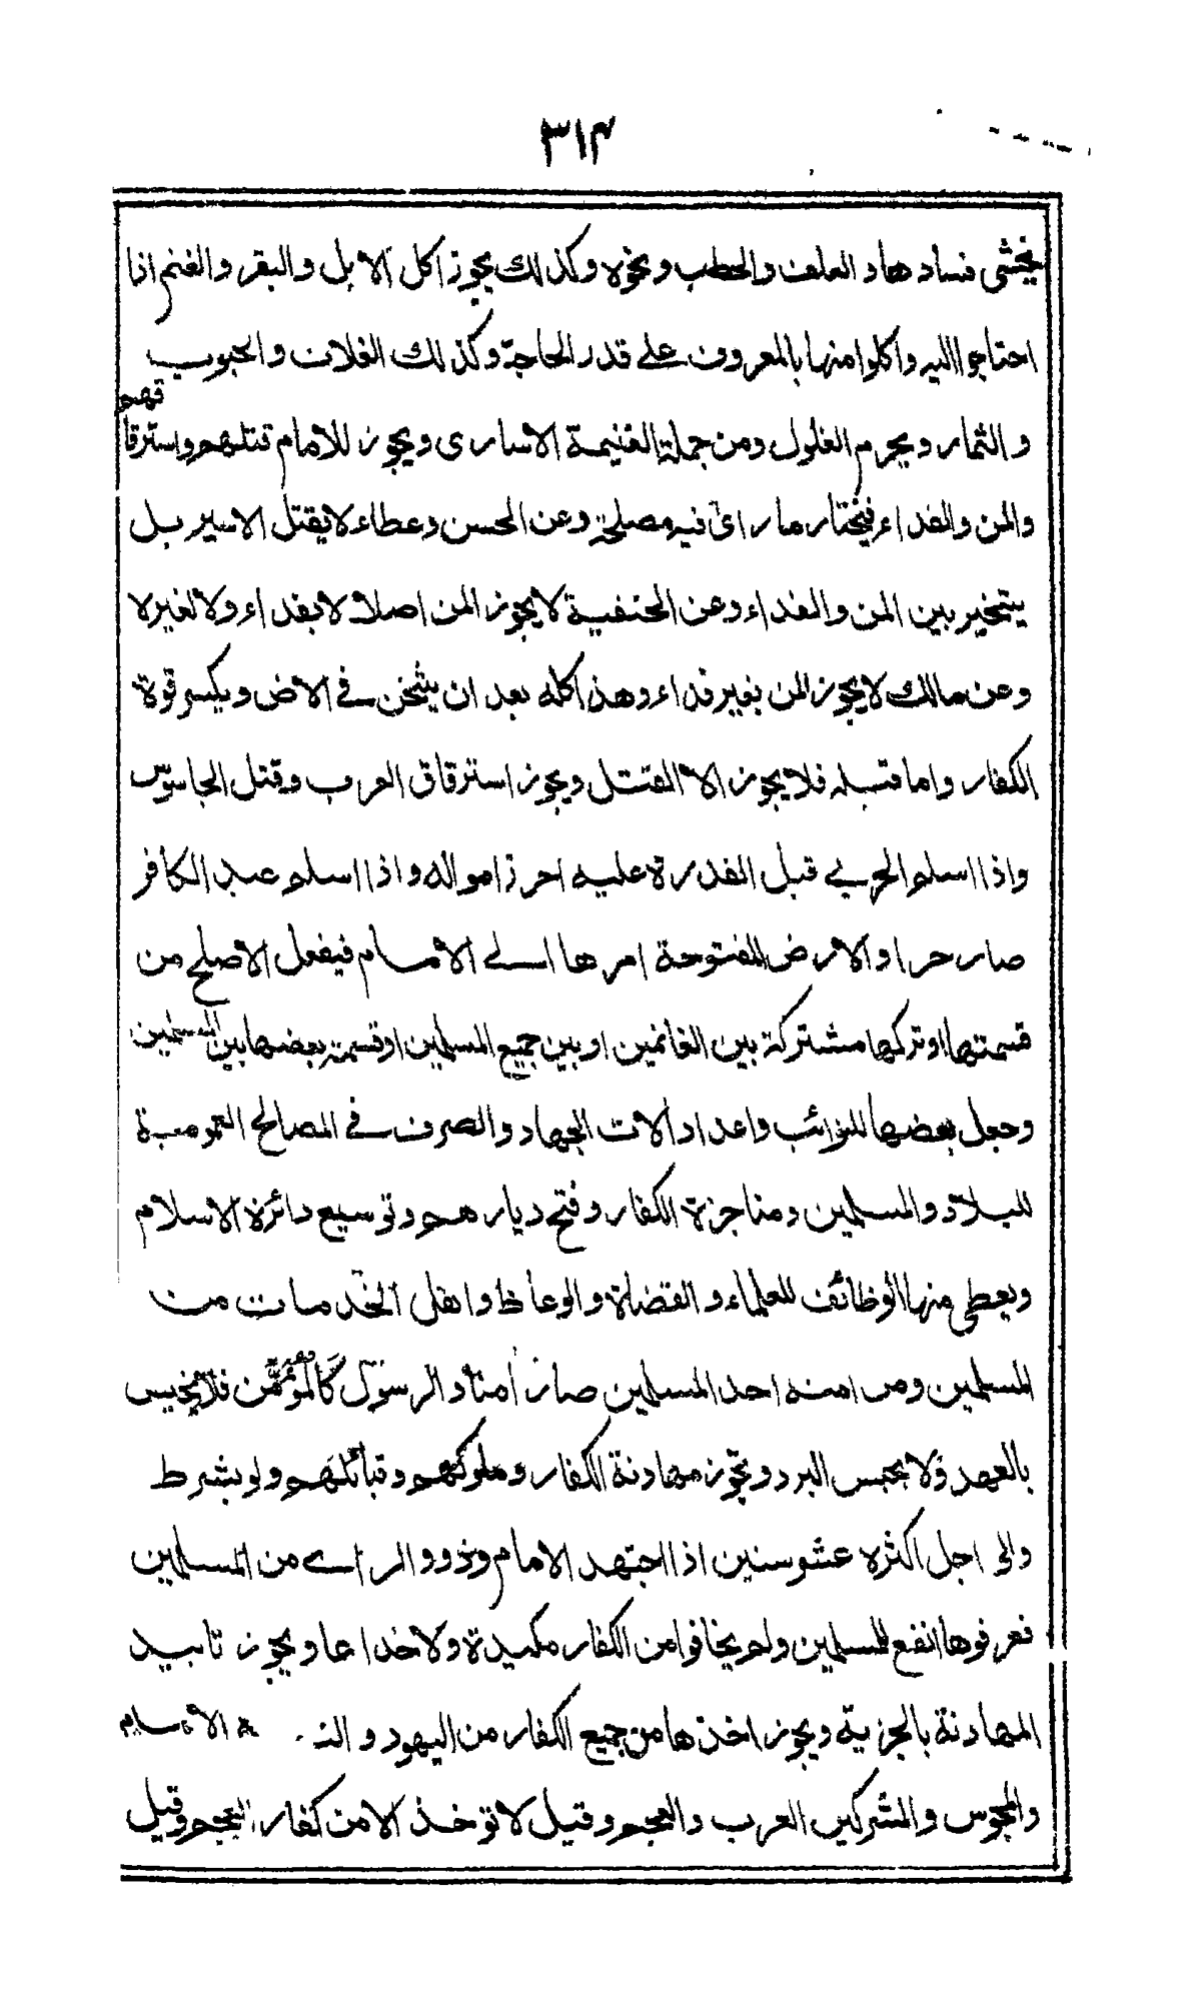 ٣١٤
يخشى فسادها و العلف والحطب ونحوه وكذلك يجوز اكل الابل والبقر والغنم اذا
احتاجوا اليه واكلوا منها بالمعروف على قدر الحاجة وكذلك الغلات والحبوب
والثمار ويحرم الغلول ومن جملة الغنيمة الاسارى ويجوز للامام قتلهم واسترقاقهم
والمن والفداء فيختار ما راى فيه مصلحة وعن الحسن وعطاء لا يقتل الاسير بل
يتخير بين المن والفداء وعن الحنفية لا يجوز المن اصلا لا بفداء ولا لغيره
وعن مالك لا يجوز المن بغير فداء وهذا كله بعد ان يثخن في الارض ويكسر قوة
الكفار واما قبله فلا يجوز الا القتل ويجوز استرقاق العرب وقتل الجاسوس
واذا اسلم الحربي قبل القدرة عليه احرز امواله واذا اسلم عبد الكافر
صار حرا والارض المفتوحة امرها الى الامام فيفعل الاصلح من
قسمتها او تركها مشتركة بين الغانمين او بين جميع المسلمين او قسمة بعضها بين المسلمين
وجعل بعضها للنوائب واعداد آلات الجهاد والصرف في المصالح العمومية
للبلاد والمسلمين ومناجزة الكفار وفتح ديارهم وتوسيع دائرة الاسلام
ويعطى منها الوظائف للعلماء والقضاة والوعاظ واهل الخدمات من
المسلمين ومن امنه احد المسلمين صار آمنا والرسول كالمؤمن فلا يخيس
بالعهد ولا يحبس البرد ويجوز مهادنة الكفار وملوكهم وقبائلهم ولو بشرط
والى اجل اكثره عشر سنين اذا اجتهد الامام وذوو الراے من المسلمين
فعرفوها انفع للمسلمين ولم يخافوا من الكفار مكيدة ولا خداعا ويجوز تابيد
المهادنة بالجزية ويجوز اخذها من جميع الكفار من اليهود و
والمجوس والمشركين العرب والعجم وقيل لا توخذ الا من كفار العجم وقيل